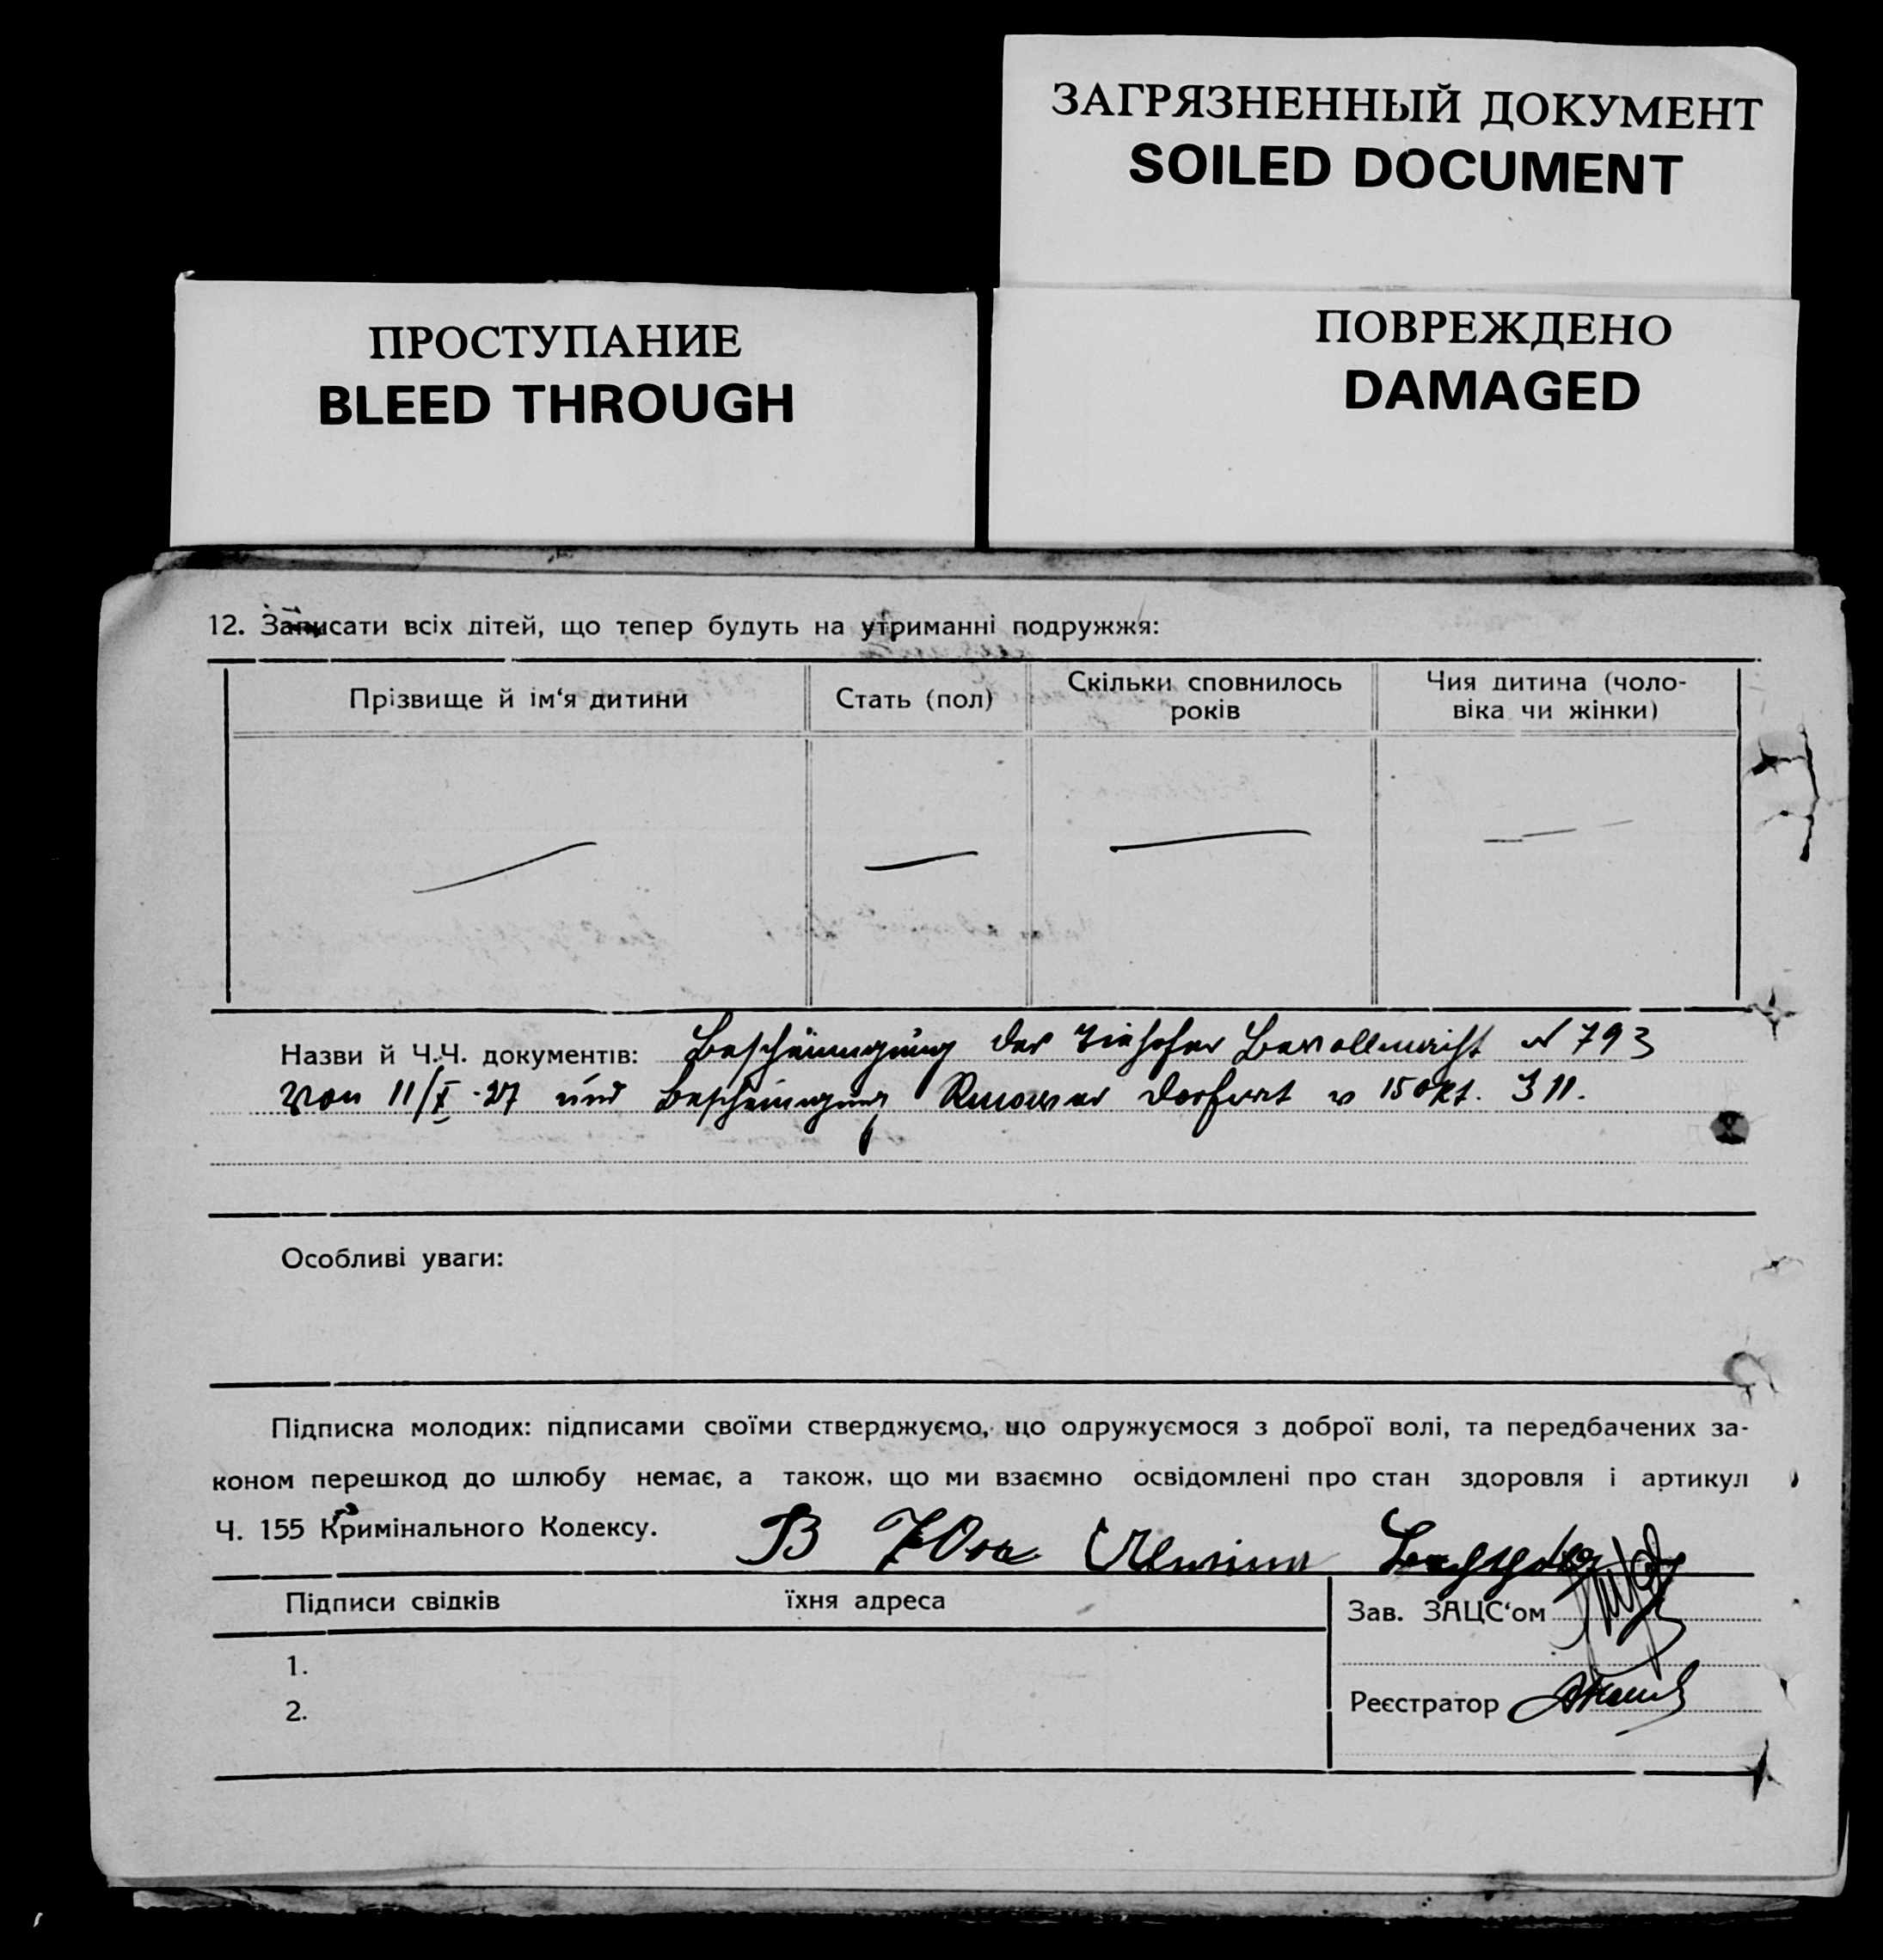 ЗАГРЯЗНЕННЫЙ ДОКУМЕНТ
SOILED DOCUMENT
ПРОСТУПАНИЕ
BLEED THROUGH
ПОВРЕЖДЕНО
DAMAGED
12. Записати всіх дітей, що тепер будуть на утриманні подружжя:
Прізвище й ім'я дитини
Стать (пол)
Скільки сповнилось
років
Чия дитина (чоло-
віка чи жінки)
Назви й Ч.Ч. документів: Bescheinigung der N 793
Von 11/X -27 und Bescheinigung v 15 okt. 311.
Особливі уваги:
Підписка молодих: підписами своїми стверджуємо, що одружуємося з доброї волі, та передбачених за-
коном перешкод до шлюбу немає, а також, що ми взаємно освідомлені про стан здоровля і артикул
Ч. 155 Крмінального Кодексу.
Підписи свідків
їхня адреса
Зав. ЗАЦС'ом
1.
2.
Реєстратор